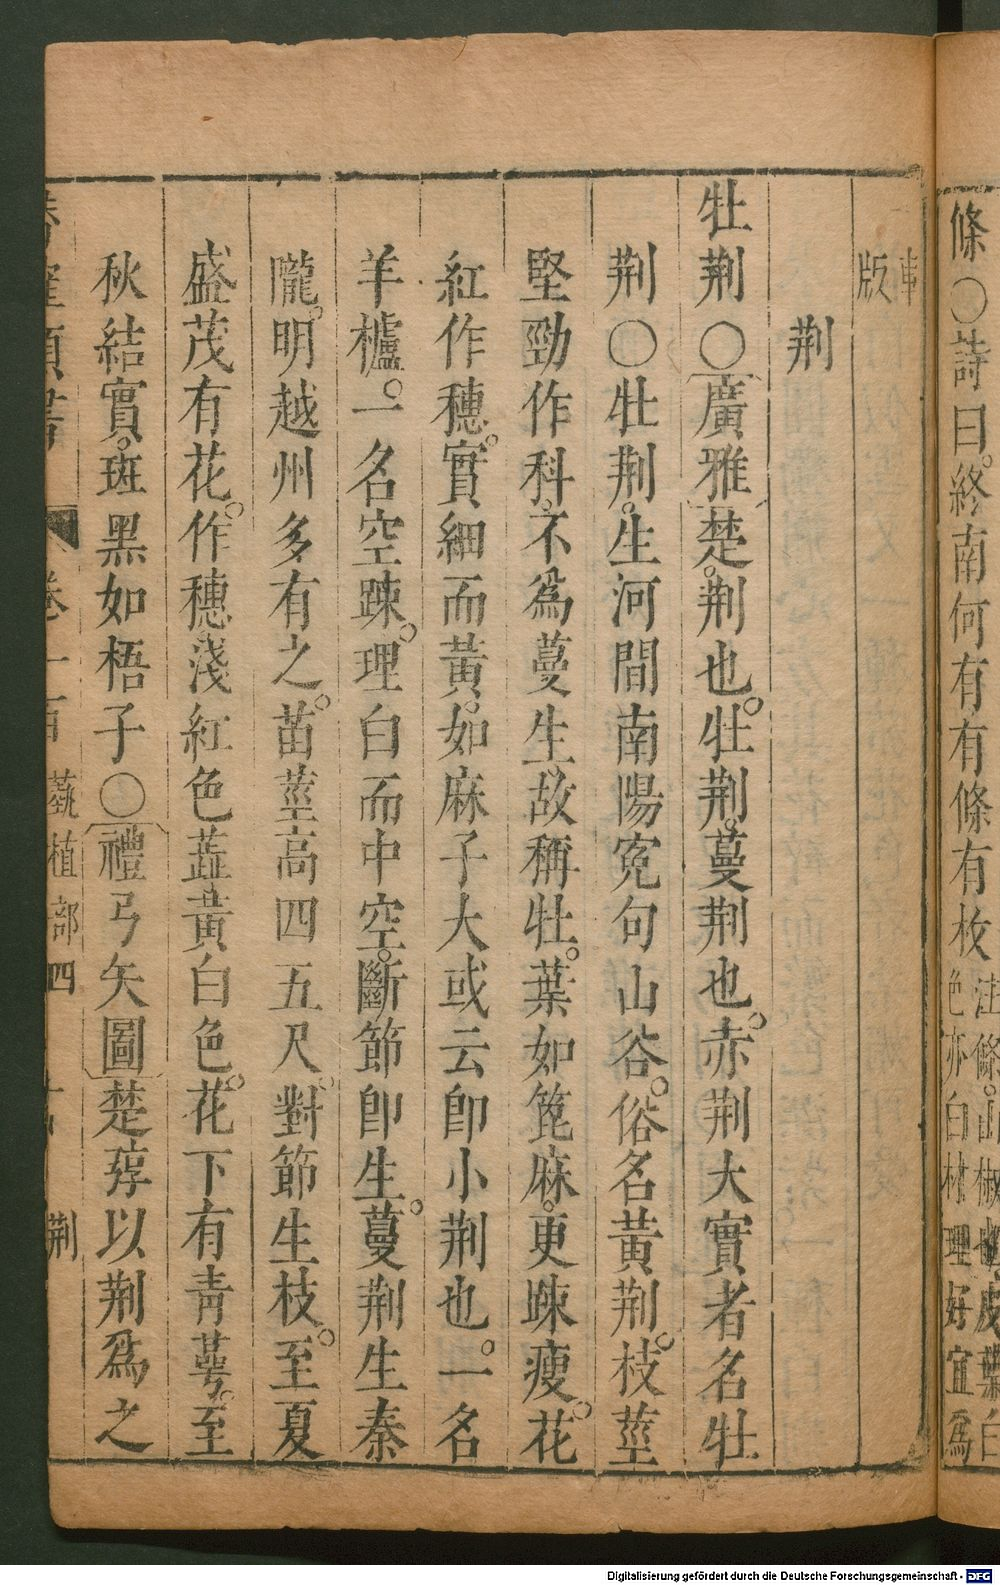 條○詩曰終南何有有條有枚
注條山楸也皮葉白
色亦白材理好宜爲
車
版
荆
牡荆○廣雅楚荆也牡荆蔓荆也赤荆大實者名牡
荆○牡荆生河間南陽寃句山谷俗名黃荆枝莖
堅勁作科不爲蔓生故稱牡葉如箆麻更踈瘦花
紅作穗實細而黃如麻子大或云卽小荆也一名
羊櫨一名空踈理白而中空斷節卽生蔓荆生秦
隴明越州多有之苗莖高四五尺對節生枝至夏
盛茂有花作穗淺紅色蕋黃白色花下有靑萼至
秋結實斑黑如梧子○禮弓矢圖楚焞以荆爲之
卷一百 蓺植部四 荆
Digitalisierung gefördert durch die Deutsche Forschungsgemeinschaft - DFG